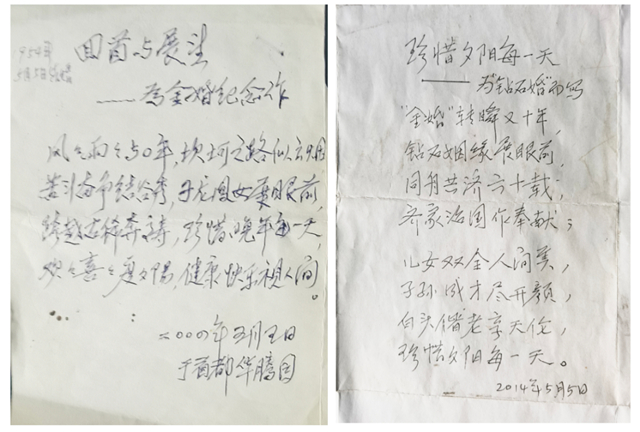 1954年
5月5日结婚
回首与展望
——为金婚纪念作
风々雨々50年,坎坷之路似云烟
苦斗奋争结,子龙女展眼前,
跨越古稀奔,珍惜晚年每一天,
欢々喜々度夕阳,健康快乐视人间。
二000四年五月五日
于首都华腾园
珍惜夕阳每一天
——为“钻石婚”而写
“金婚”转瞬又十年,
钻石姻缘展眼前,
同舟共济六十载,
齐家治国作奉献;
儿女双全人间美,
子孙成才尽开颜,
白头偕老享天伦,
珍惜夕阳每一天。
2014年5月5日